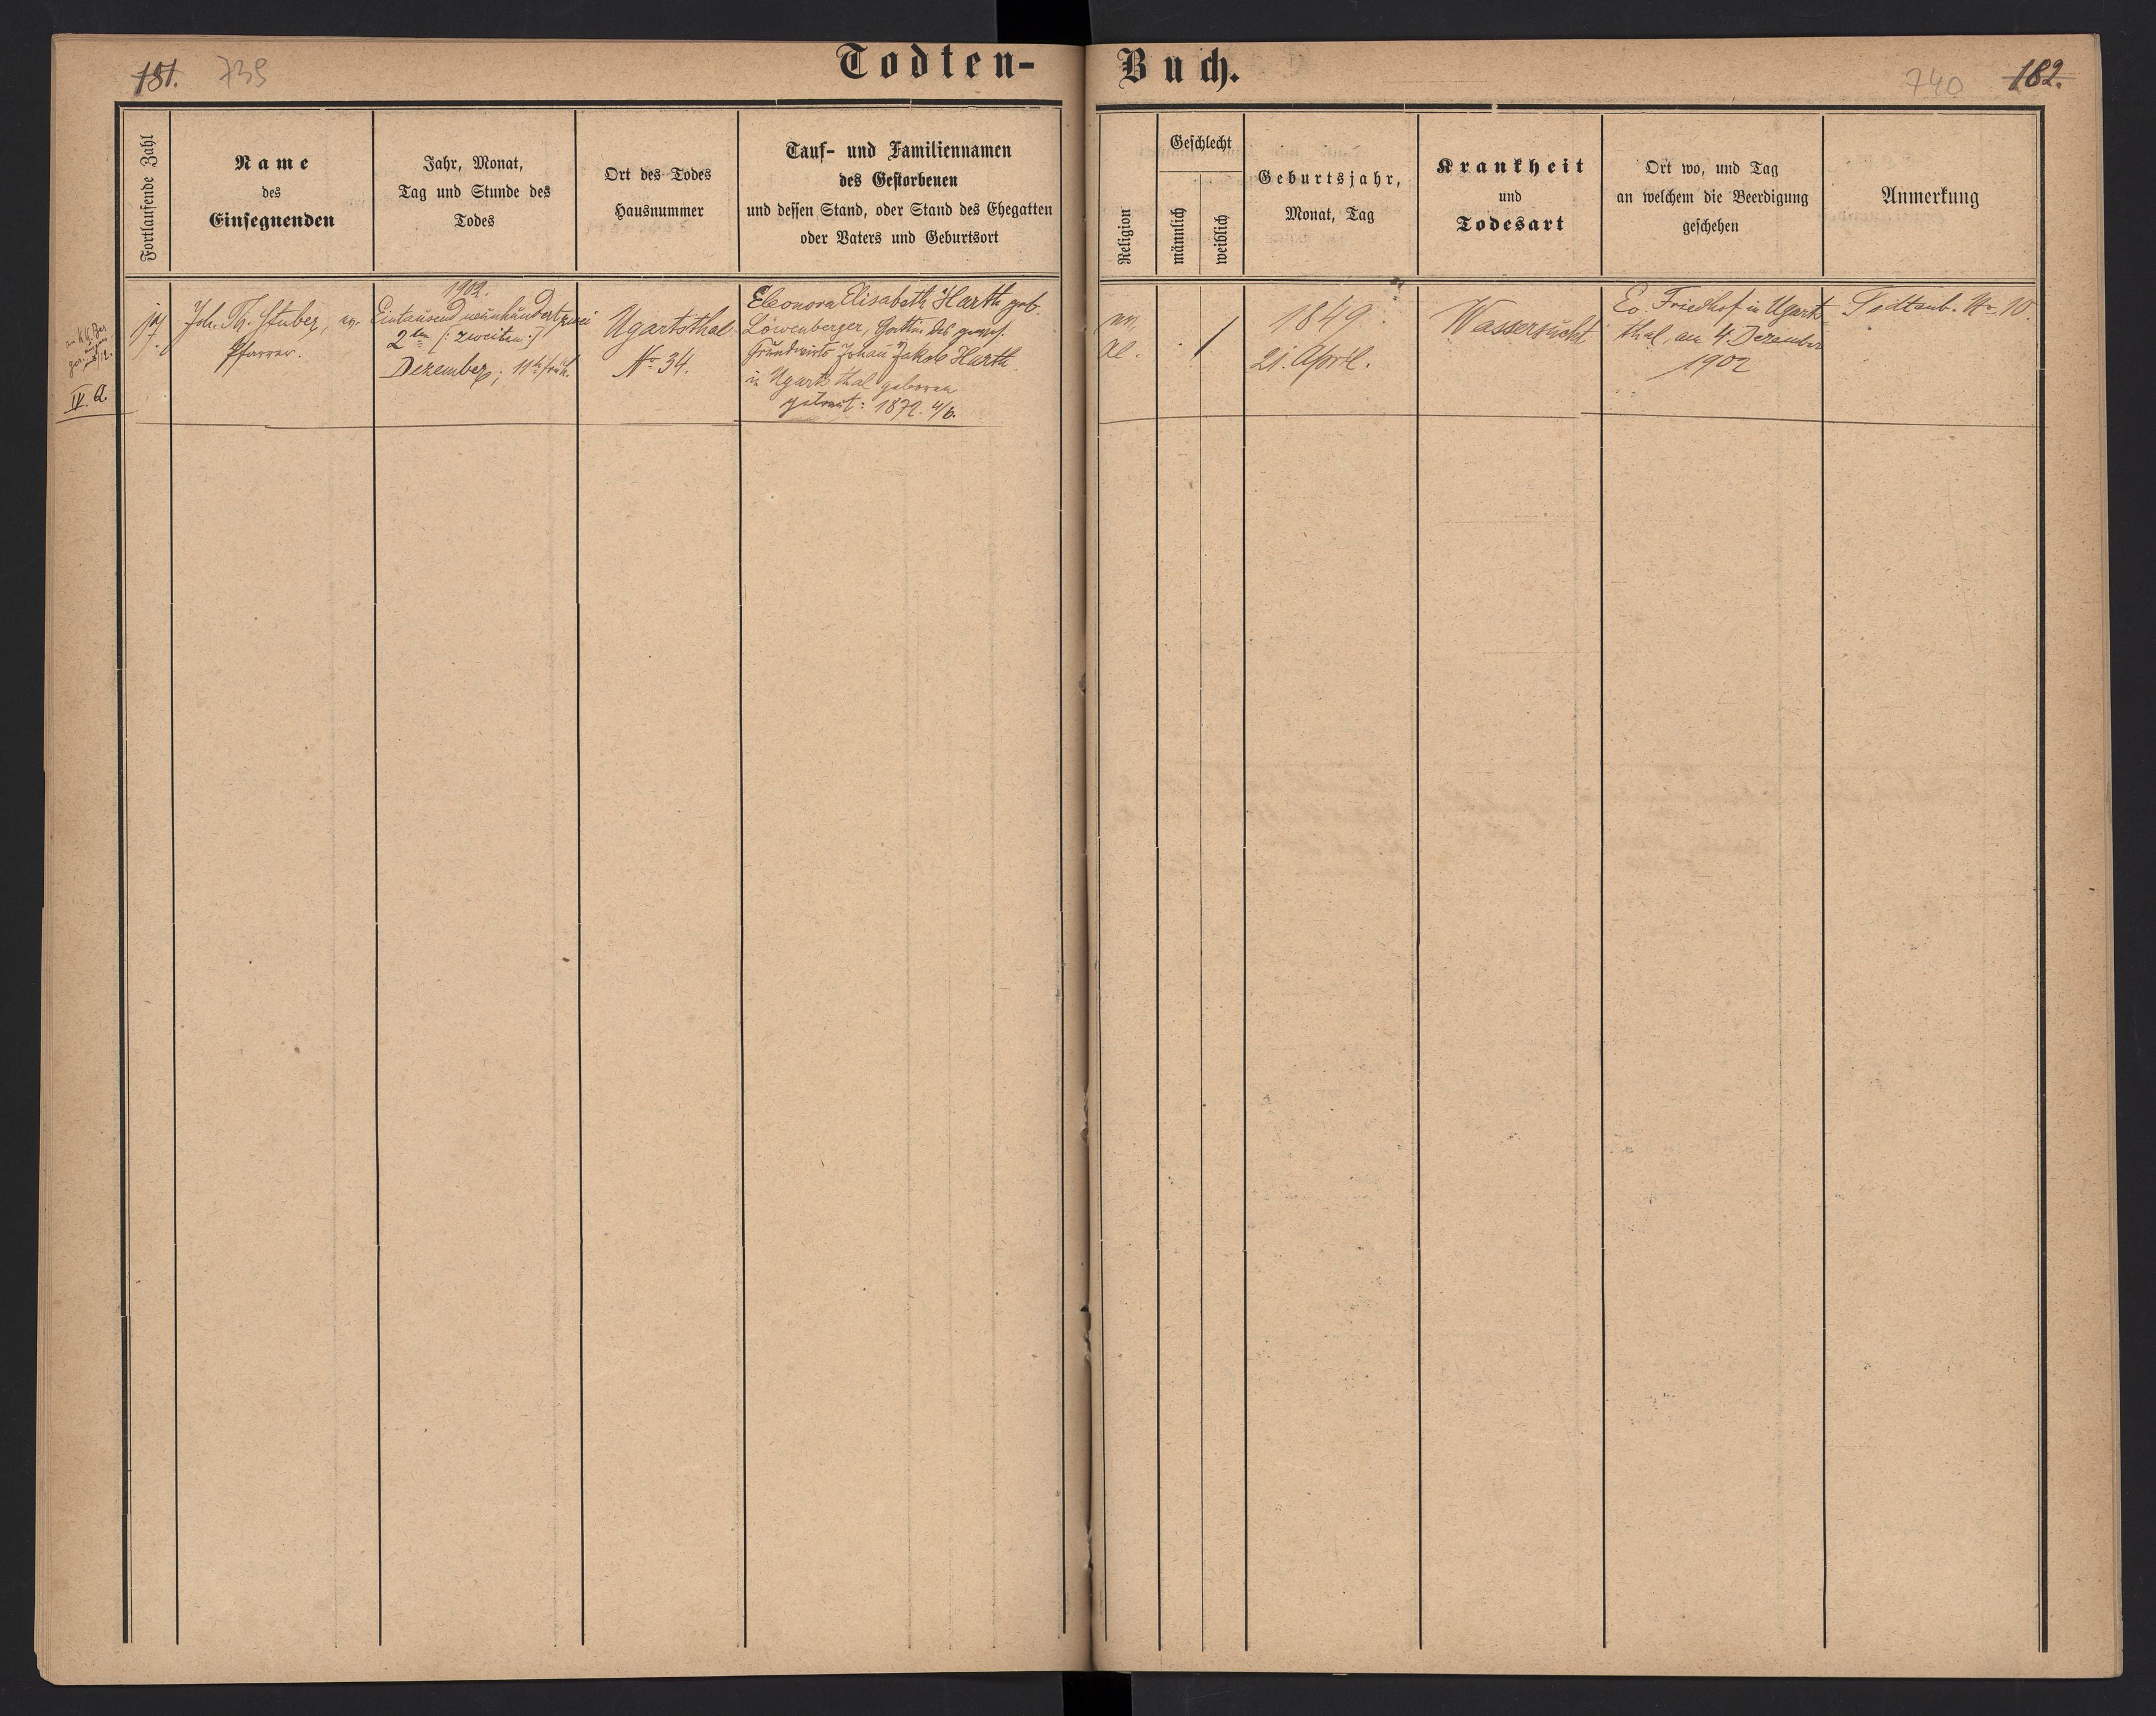 Todten-Buch.
181. 739
740 182.
Fortlaufende Zahl
Name
des
Einsegnenden
Jahr, Monat,
Tag und Stunde des
Todes
Ort des Todes
Hausnummer
Tauf- und Familiennamen
des Gestorbenen
und dessen Stand, oder Stand des Ehegatten
oder Vaters und Geburtsort
Religion
Geschlecht
männlich
weiblich
Geburtsjahr,
Monat, Tag
Krankheit
und
Todesart
Ort wo, und Tag
an welchem die Beerdigung
geschehen
Anmerkung
IV. Q.
Joh. Th. Stuber, ev.
Pfarrer.
1902.
Eintausend neunhundertzwei
2ten (: zweiten :)
Dezember; 11 h früh.
Ugartsthal
No 34.
Eleonora Elisabeth Harth geb.
Löwenberger, Gattin des
Grundwirts Johañ Jakob Harth
in Ugartsthal geboren
getraut: 1872. 4/6.
1
1849
21. April.
Wassersucht
Ev. Friedhof in Ugarts-
thal, am 4. Dezember
1902
Todtenb. No 10.